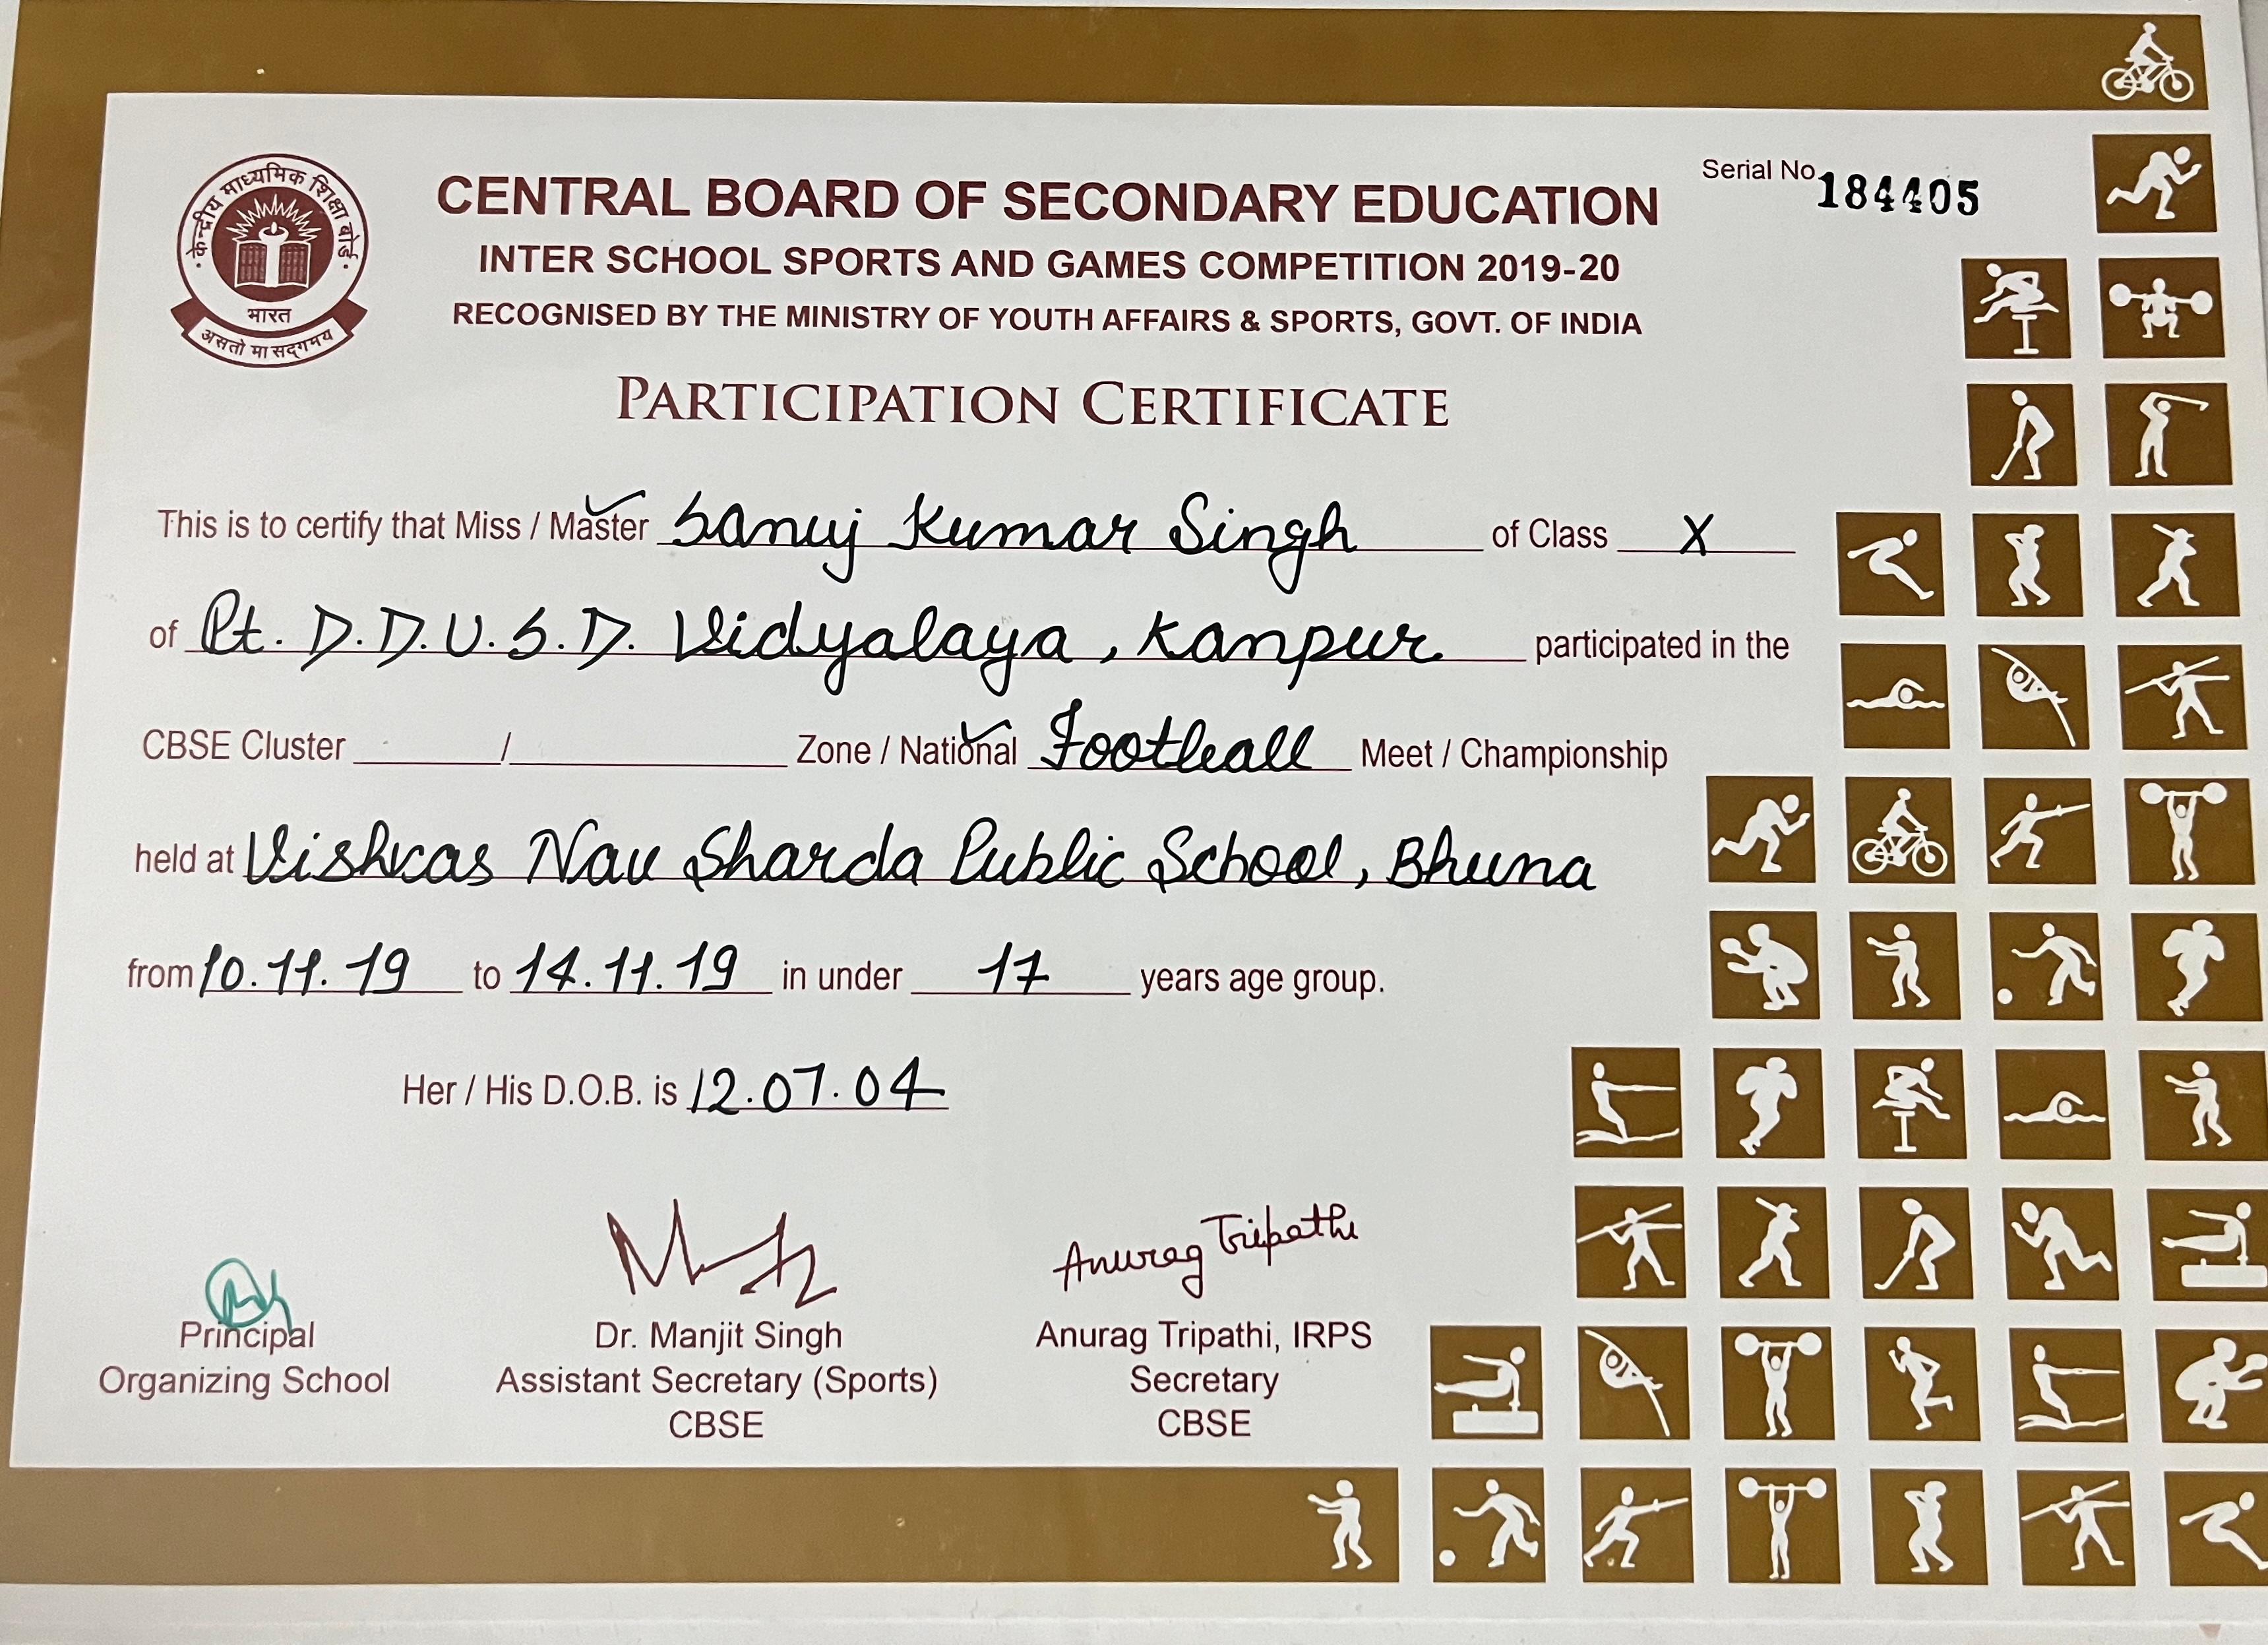 केन्द्रीय माध्यमिक शिक्षा बोर्ड
भारत
असतो मा सद्गमय
Serial No. 184405
CENTRAL BOARD OF SECONDARY EDUCATION
INTER SCHOOL SPORTS AND GAMES COMPETITION 2019-20
RECOGNISED BY THE MINISTRY OF YOUTH AFFAIRS & SPORTS, GOVT. OF INDIA
PARTICIPATION CERTIFICATE
This is to certify that Miss / Master Sanuj Kumar Singh of Class X
of Pt. D.D.U.S.D. Vidyalaya, Kanpur participated in the
CBSE Cluster / Zone / National Football Meet / Championship
held at Vishvas Nav Sharda Public School, Bhuna
from 10.11.19 to 14.11.19 in under 17 years age group.
Her / His D.O.B. is 12.07.04
Anurag Tripathi
Principal
Organizing School
Dr. Manjit Singh
Assistant Secretary (Sports)
CBSE
Anurag Tripathi, IRPS
Secretary
CBSE